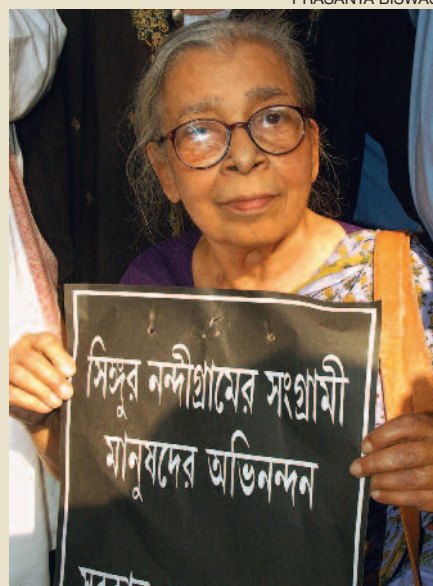 PRASANTA BISWAS
সিঙ্গুর নন্দীগ্রামের সংগ্রামী
মানুষদের অভিনন্দন